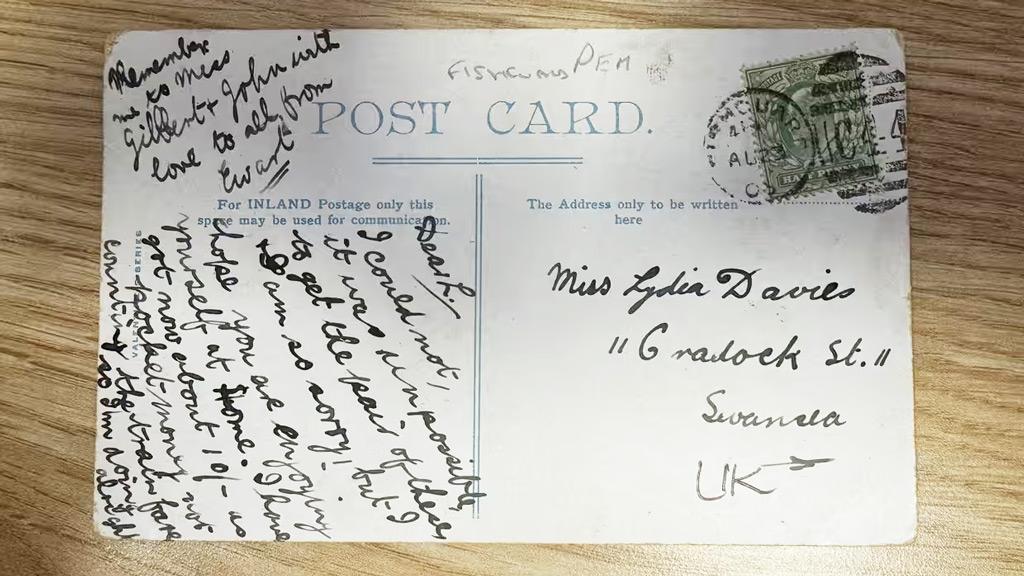 Remember
me to Miss
Gilbert & John with
love to all from
Ewart
PEM
POST CARD.
For INLAND Postage only this
space may be used for communication.
The Address only to be written
here
VALENTINES SERIES
Dear L.
I could not,
it was unpossible,
to get the pair of these
& I am so sorry, but I
hope you are enjoying
yourself at Home. I have
got now about 10/- as
pocket-money not
counting the train fare
so I'm doing alright
Miss Lydia Davies
"Cradock St."
Swansea
UK